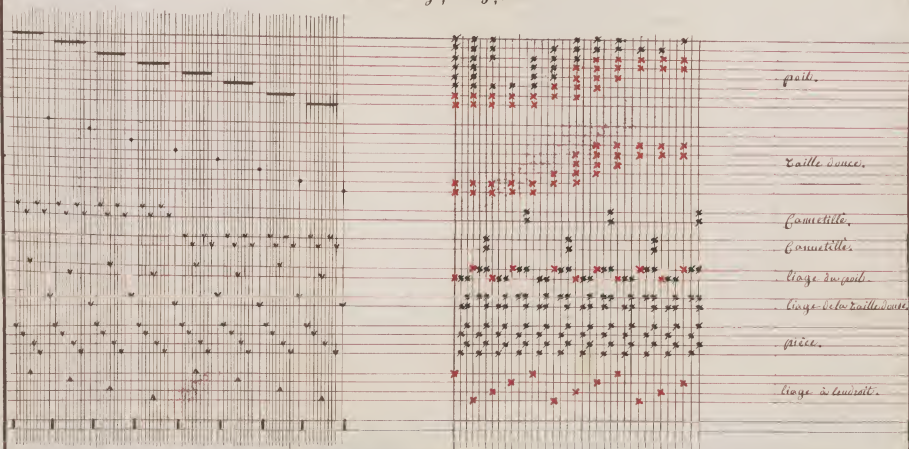 poil.
Taille douce.
Cannetille.
Cannetilles.
liage du poil.
liage de la Taille douce.
pièce.
liage à lendroit.